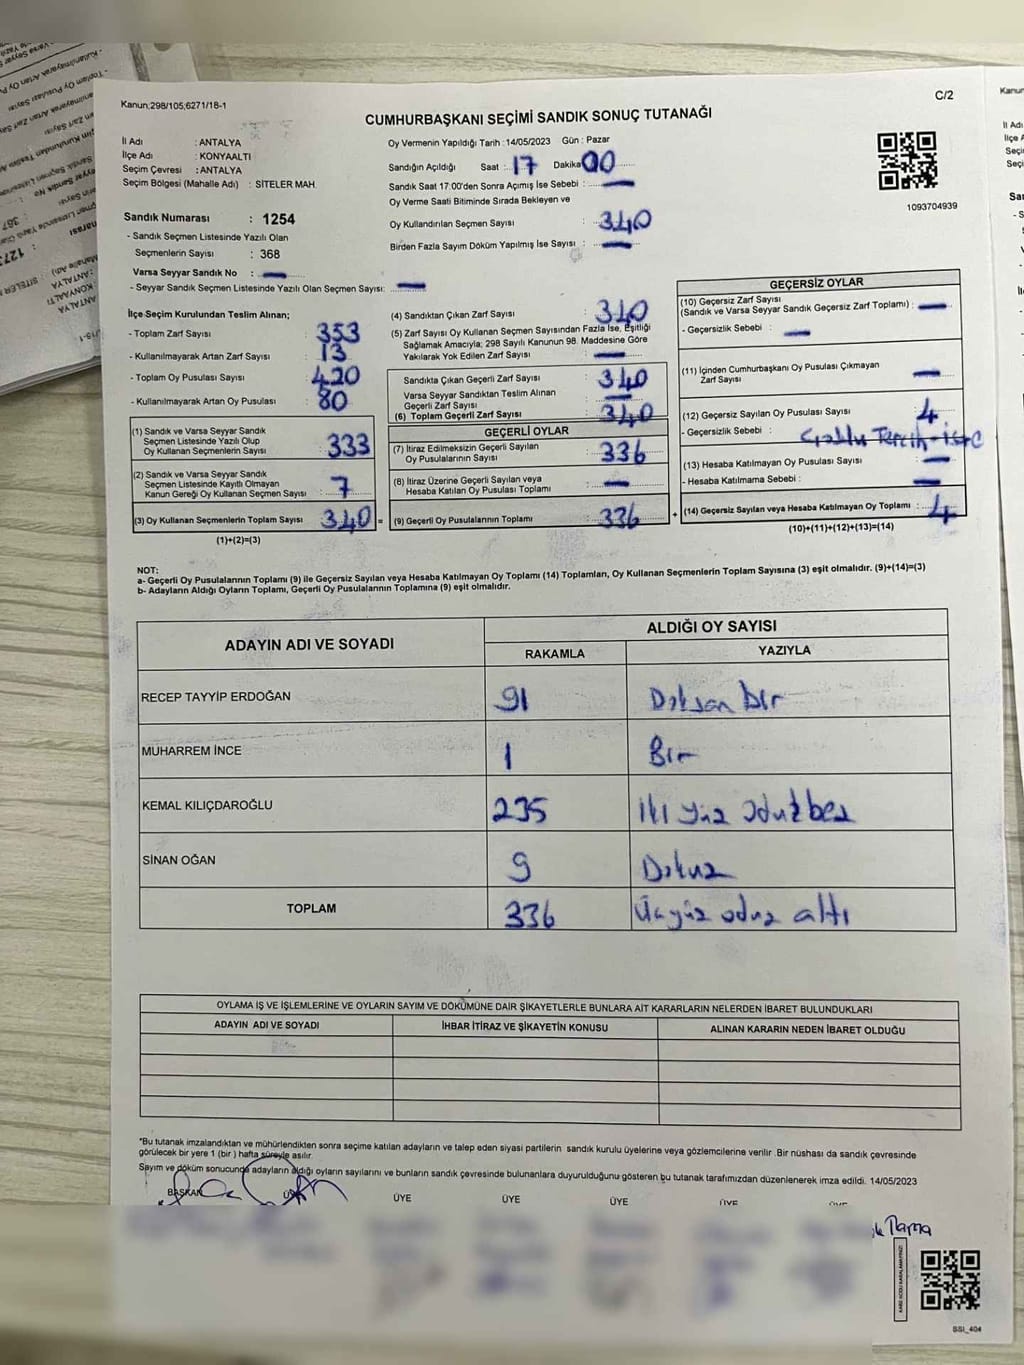 Kanun;298/105;6271/18-1
C/2
CUMHURBAŞKANI SEÇİMİ SANDIK SONUÇ TUTANAĞI
İl Adı : ANTALYA
İlçe Adı : KONYAALTI
Seçim Çevresi : ANTALYA
Seçim Bölgesi (Mahalle Adı) : SİTELER MAH.
Sandık Numarası : 1254
- Sandık Seçmen Listesinde Yazılı Olan
Seçmenlerin Sayısı : 368
Varsa Seyyar Sandık No : —
- Seyyar Sandık Seçmen Listesinde Yazılı Olan Seçmen Sayısı: —
Oy Vermenin Yapıldığı Tarih : 14/05/2023 Gün : Pazar
Sandığın Açıldığı Saat : 17 Dakika 00
Sandık Saat 17:00'den Sonra Açımış İse Sebebi : —
Oy Verme Saati Bitiminde Sırada Bekleyen ve
Oy Kullandırılan Seçmen Sayısı : 340
Birden Fazla Sayım Döküm Yapılmış İse Sayısı : —
1093704939
İlçe Seçim Kurulundan Teslim Alınan;
- Toplam Zarf Sayısı : 353
- Kullanılmayarak Artan Zarf Sayısı : 13
- Toplam Oy Pusulası Sayısı : 420
- Kullanılmayarak Artan Oy Pusulası : 80
(1) Sandık ve Varsa Seyyar Sandık
Seçmen Listesinde Yazılı Olup
Oy Kullanan Seçmenlerin Sayısı : 333
(2) Sandık ve Varsa Seyyar Sandık
Seçmen Listesinde Kayıtlı Olmayan
Kanun Gereği Oy Kullanan Seçmen Sayısı : 7
(3) Oy Kullanan Seçmenlerin Toplam Sayısı : 340 =
(1)+(2)=(3)
(4) Sandıktan Çıkan Zarf Sayısı : 340
(5) Zarf Sayısı Oy Kullanan Seçmen Sayısından Fazla İse, Eşitliği
Sağlamak Amacıyla; 298 Sayılı Kanunun 98. Maddesine Göre
Yakılarak Yok Edilen Zarf Sayısı : —
Sandıkta Çıkan Geçerli Zarf Sayısı : 340
Varsa Seyyar Sandıktan Teslim Alınan
Geçerli Zarf Sayısı : —
(6) Toplam Geçerli Zarf Sayısı : 340
GEÇERLİ OYLAR
(7) İtiraz Edilmeksizin Geçerli Sayılan
Oy Pusulalarının Sayısı : 336
(8) İtiraz Üzerine Geçerli Sayılan veya
Hesaba Katılan Oy Pusulası Toplamı : —
(9) Geçerli Oy Pusulalarının Toplamı : 336 +
GEÇERSİZ OYLAR
(10) Geçersiz Zarf Sayısı
(Sandık ve Varsa Seyyar Sandık Geçersiz Zarf Toplamı) : —
- Geçersizlik Sebebi : —
(11) İçinden Cumhurbaşkanı Oy Pusulası Çıkmayan
Zarf Sayısı : —
(12) Geçersiz Sayılan Oy Pusulası Sayısı : 4
- Geçersizlik Sebebi :
(13) Hesaba Katılmayan Oy Pusulası Sayısı : —
- Hesaba Katılmama Sebebi : —
(14) Geçersiz Sayılan veya Hesaba Katılmayan Oy Toplamı : 4
(10)+(11)+(12)+(13)=(14)
NOT:
a- Geçerli Oy Pusulalarının Toplamı (9) ile Geçersiz Sayılan veya Hesaba Katılmayan Oy Toplamı (14) Toplamları, Oy Kullanan Seçmenlerin Toplam Sayısına (3) eşit olmalıdır. (9)+(14)=(3)
b- Adayların Aldığı Oyların Toplamı, Geçerli Oy Pusulalarının Toplamına (9) eşit olmalıdır.
ADAYIN ADI VE SOYADI ALDIĞI OY SAYISI
RAKAMLA YAZIYLA
RECEP TAYYİP ERDOĞAN 91 Doksan bir
MUHARREM İNCE 1 Bir
KEMAL KILIÇDAROĞLU 235 İki yüz otuzbeş
SİNAN OĞAN 9 Dokuz
TOPLAM 336 Üçyüz otuz altı
OYLAMA İŞ VE İŞLEMLERİNE VE OYLARIN SAYIM VE DÖKÜMÜNE DAİR ŞİKAYETLERLE BUNLARA AİT KARARLARIN NELERDEN İBARET BULUNDUKLARI
ADAYIN ADI VE SOYADI İHBAR İTİRAZ VE ŞİKAYETİN KONUSU ALINAN KARARIN NEDEN İBARET OLDUĞU
*Bu tutanak imzalandıktan ve mühürlendikten sonra seçime katılan adayların ve talep eden siyasi partilerin sandık kurulu üyelerine veya gözlemcilerine verilir .Bir nüshası da sandık çevresinde
görülecek bir yere 1 (bir ) hafta süreyle asılır.
Sayım ve döküm sonucunda adayların aldığı oyların sayılarını ve bunların sandık çevresinde bulunanlara duyurulduğunu gösteren bu tutanak tarafımızdan düzenlenerek imza edildi. 14/05/2023
BAŞKAN ÜYE ÜYE ÜYE ÜYE ÜYE ÜYE
SSI_404